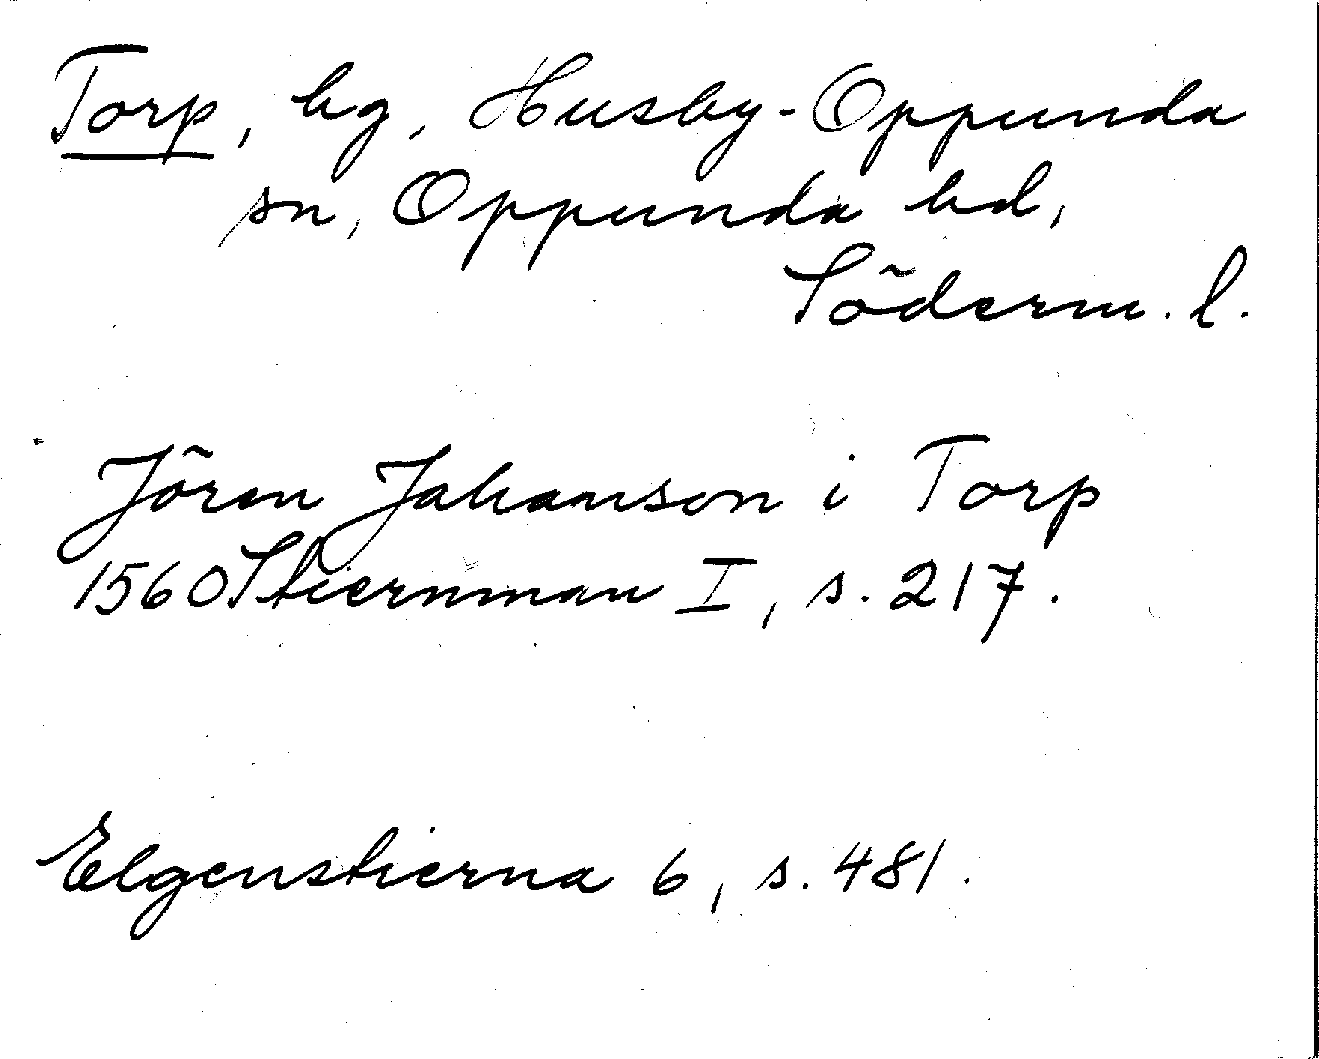 Torp, hg, Husby-Oppunda
sn, Oppunda hd,
Söderm. l.
Jören Jahanson i Torp
1560 Stiernman I, s. 217.
Elgenstierna 6, s. 481.